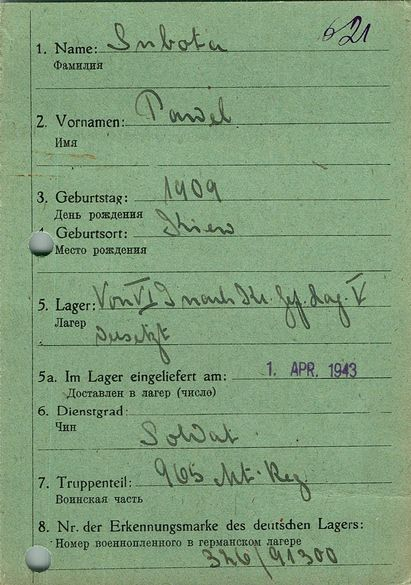 621
1. Name: Subota
Фамилия
2. Vornamen: Pawel
Имя
3. Geburtstag: 1909
День рождения
4. Geburtsort: Kiew
Место рождения
5. Lager: Von VI J nach Kr. Gef. Lag. V
Лагер
5a. Im Lager eingeliefert am: 1. APR. 1943
Доставлен в лагер (число)
6. Dienstgrad:
Чин
Soldat
7. Truppenteil: 965 Reg
Воинская часть
8. Nr. der Erkennungsmarke des deutschen Lagers:
Номер военнопленного в германском лагере
326/91300